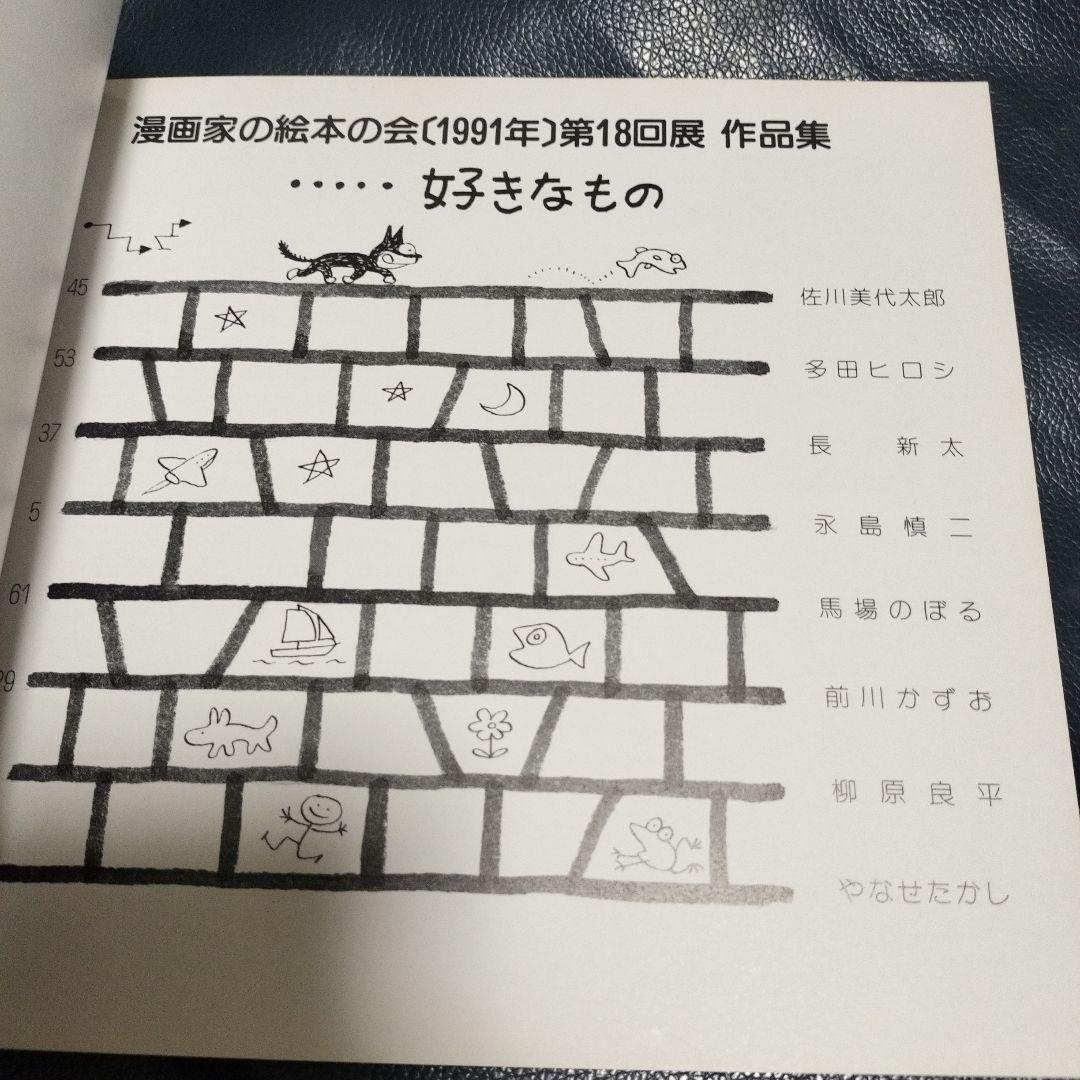 漫画家の絵本の会〔1991年〕第18回展 作品集
・・・・・ 好きなもの
45 佐川美代太郎
53 多田ヒロシ
37 長 新太
5 永島慎二
61 馬場のぼる
29 前川かずお
柳原良平
やなせたかし